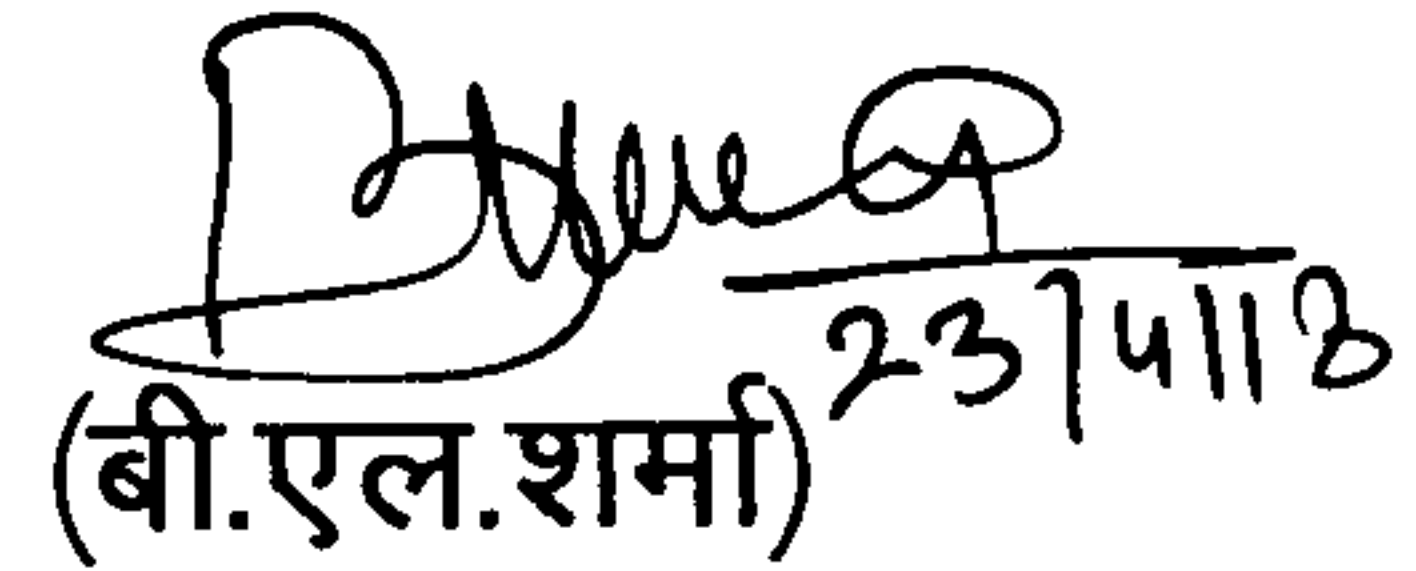 23/4/18
(बी.एल.शर्मा)